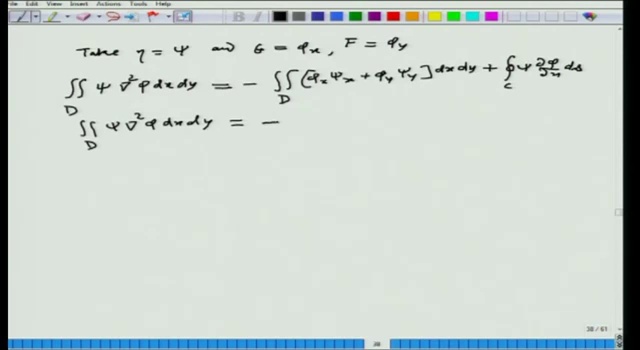 File Edit View Insert Actions Tools Help
Take η = Ψ and G = φₓ, F = φᵧ
∬_D Ψ ∇²φ dx dy = - ∬_D [φₓ Ψₓ + φᵧ Ψᵧ] dx dy + ∮_C Ψ ∂φ/∂n ds
∬_D Ψ ∇²φ dx dy = -
38 / 61
38